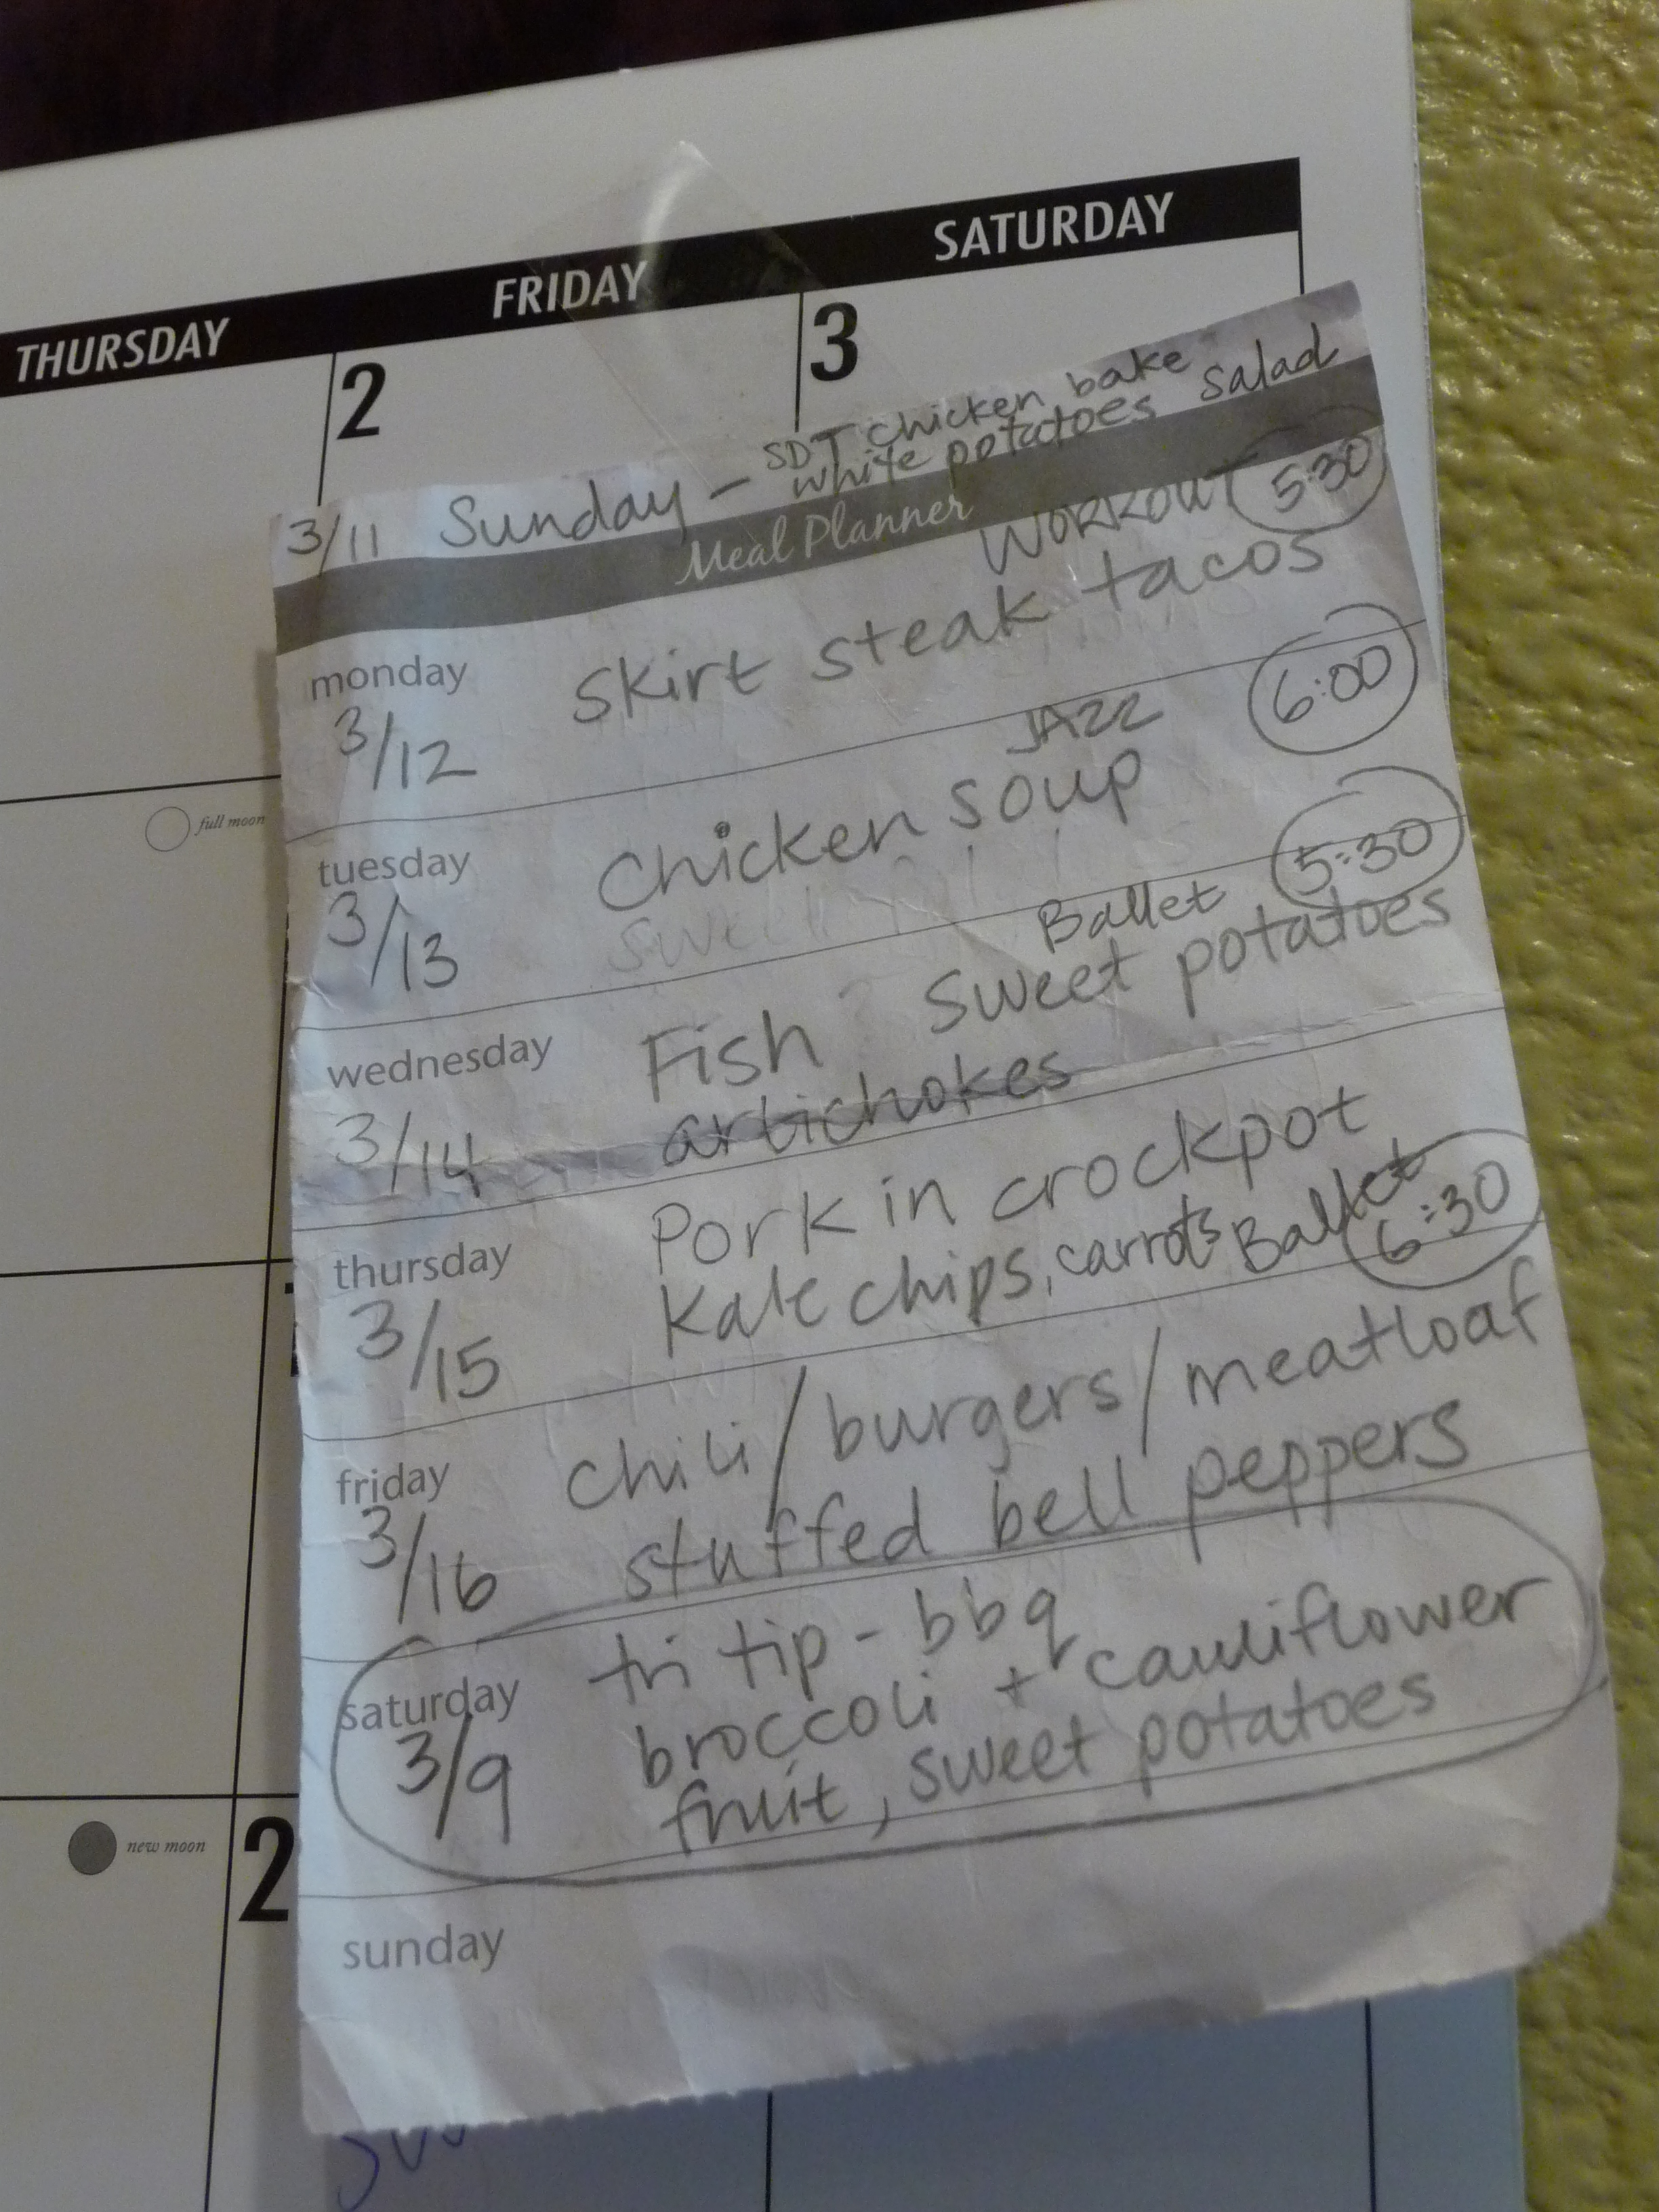 THURSDAY FRIDAY SATURDAY
2 3
SDT chicken bake
3/11 Sunday - white potatoes salad
Meal Planner
WORKOUT 5:30
monday skirt steak tacos
3/12
JAZZ 6:00
tuesday chicken soup
3/13 sweet
Ballet 5:30
wednesday Fish sweet potatoes
3/14 artichokes
thursday Pork in crockpot
3/15 Kale chips, carrots Ballet 6:30
friday chili/burgers/meatloaf
3/16 stuffed bell peppers
saturday tri tip - bbq
3/9 broccoli + cauliflower
fruit, sweet potatoes
sunday
full moon
new moon 2